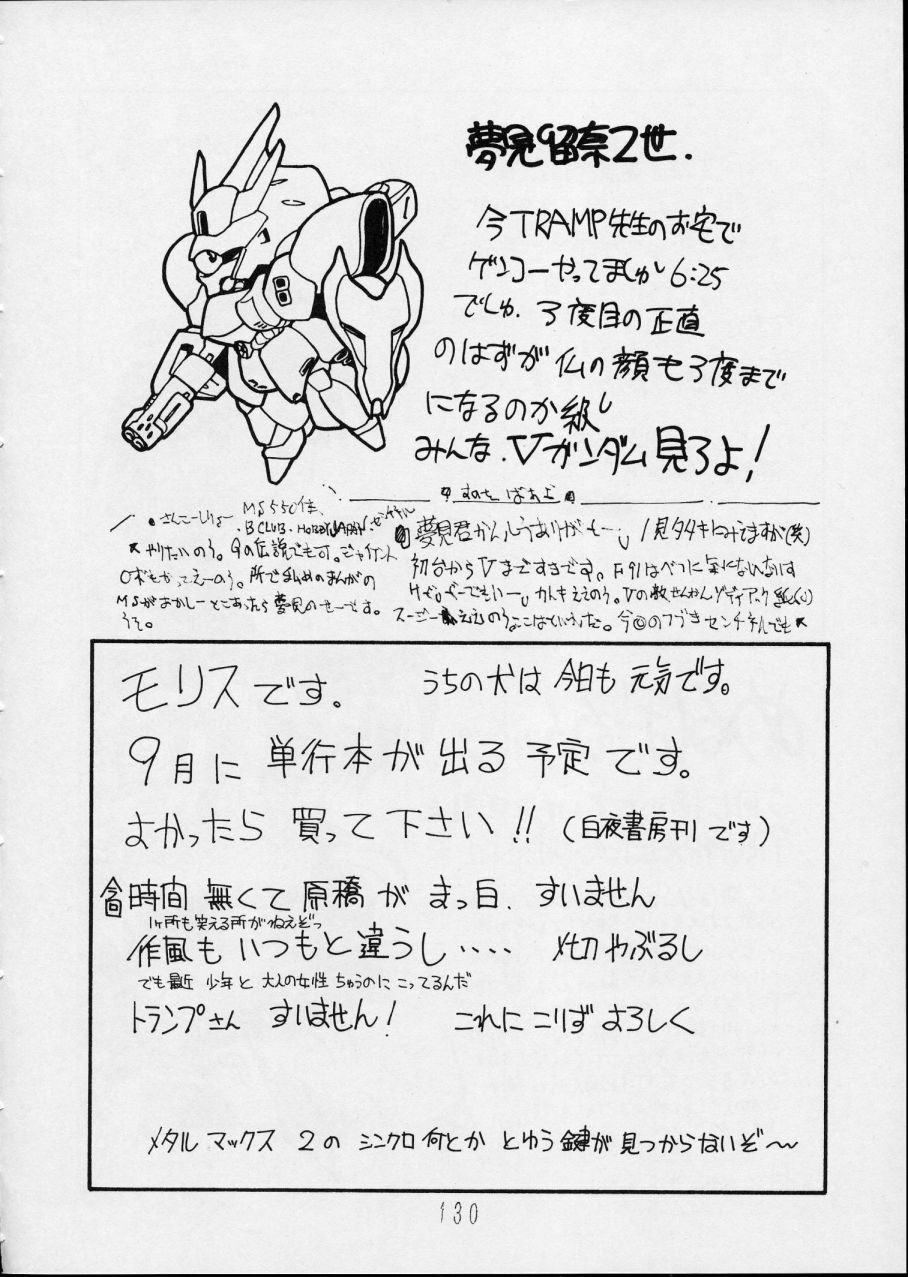 夢見留奈Z世.
今TRAMP先生のお宅で
ゲンコーやってましゅ 6:25
でしゅ. 3度目の正直
のはずが 仏の顔も3度まで
になるのか級し
みんな.Vガンダム見ろよ!
すのさ ばあじ
さんこーしりょー MS550住、
・B CLUB・HOBBY JAPAN・
やりたいのう。9の伝説でも可。ジャイアント
ロボもかってえーのう。所で私めのまんがの
MSがおかしーとこあったら夢見のせーです。
うそ。
夢見君かんしうありがとー 1見タタキにみてますか(笑)
初台からVまですきです。F91はべつに気にないなす
モリスです。 うちの犬は 今日も 元気です。
9月に 単行本が 出る 予定 です。
よかったら 買って 下さい!! (白夜書房刊です)
今回 時間 無くて 原稿 が まっ白. すいません
1ヶ所も笑える所がねえぞっ
作風も いつもと 違うし・・・・ 〆切 やぶるし
でも最近 少年と 大人の女性 ちゅうのに こってるんだ
トランプさん すいません! これに こりず よろしく
メタル マックス 2の シンクロ 何とか とゆう 鍵が 見つからないぞ〜
130